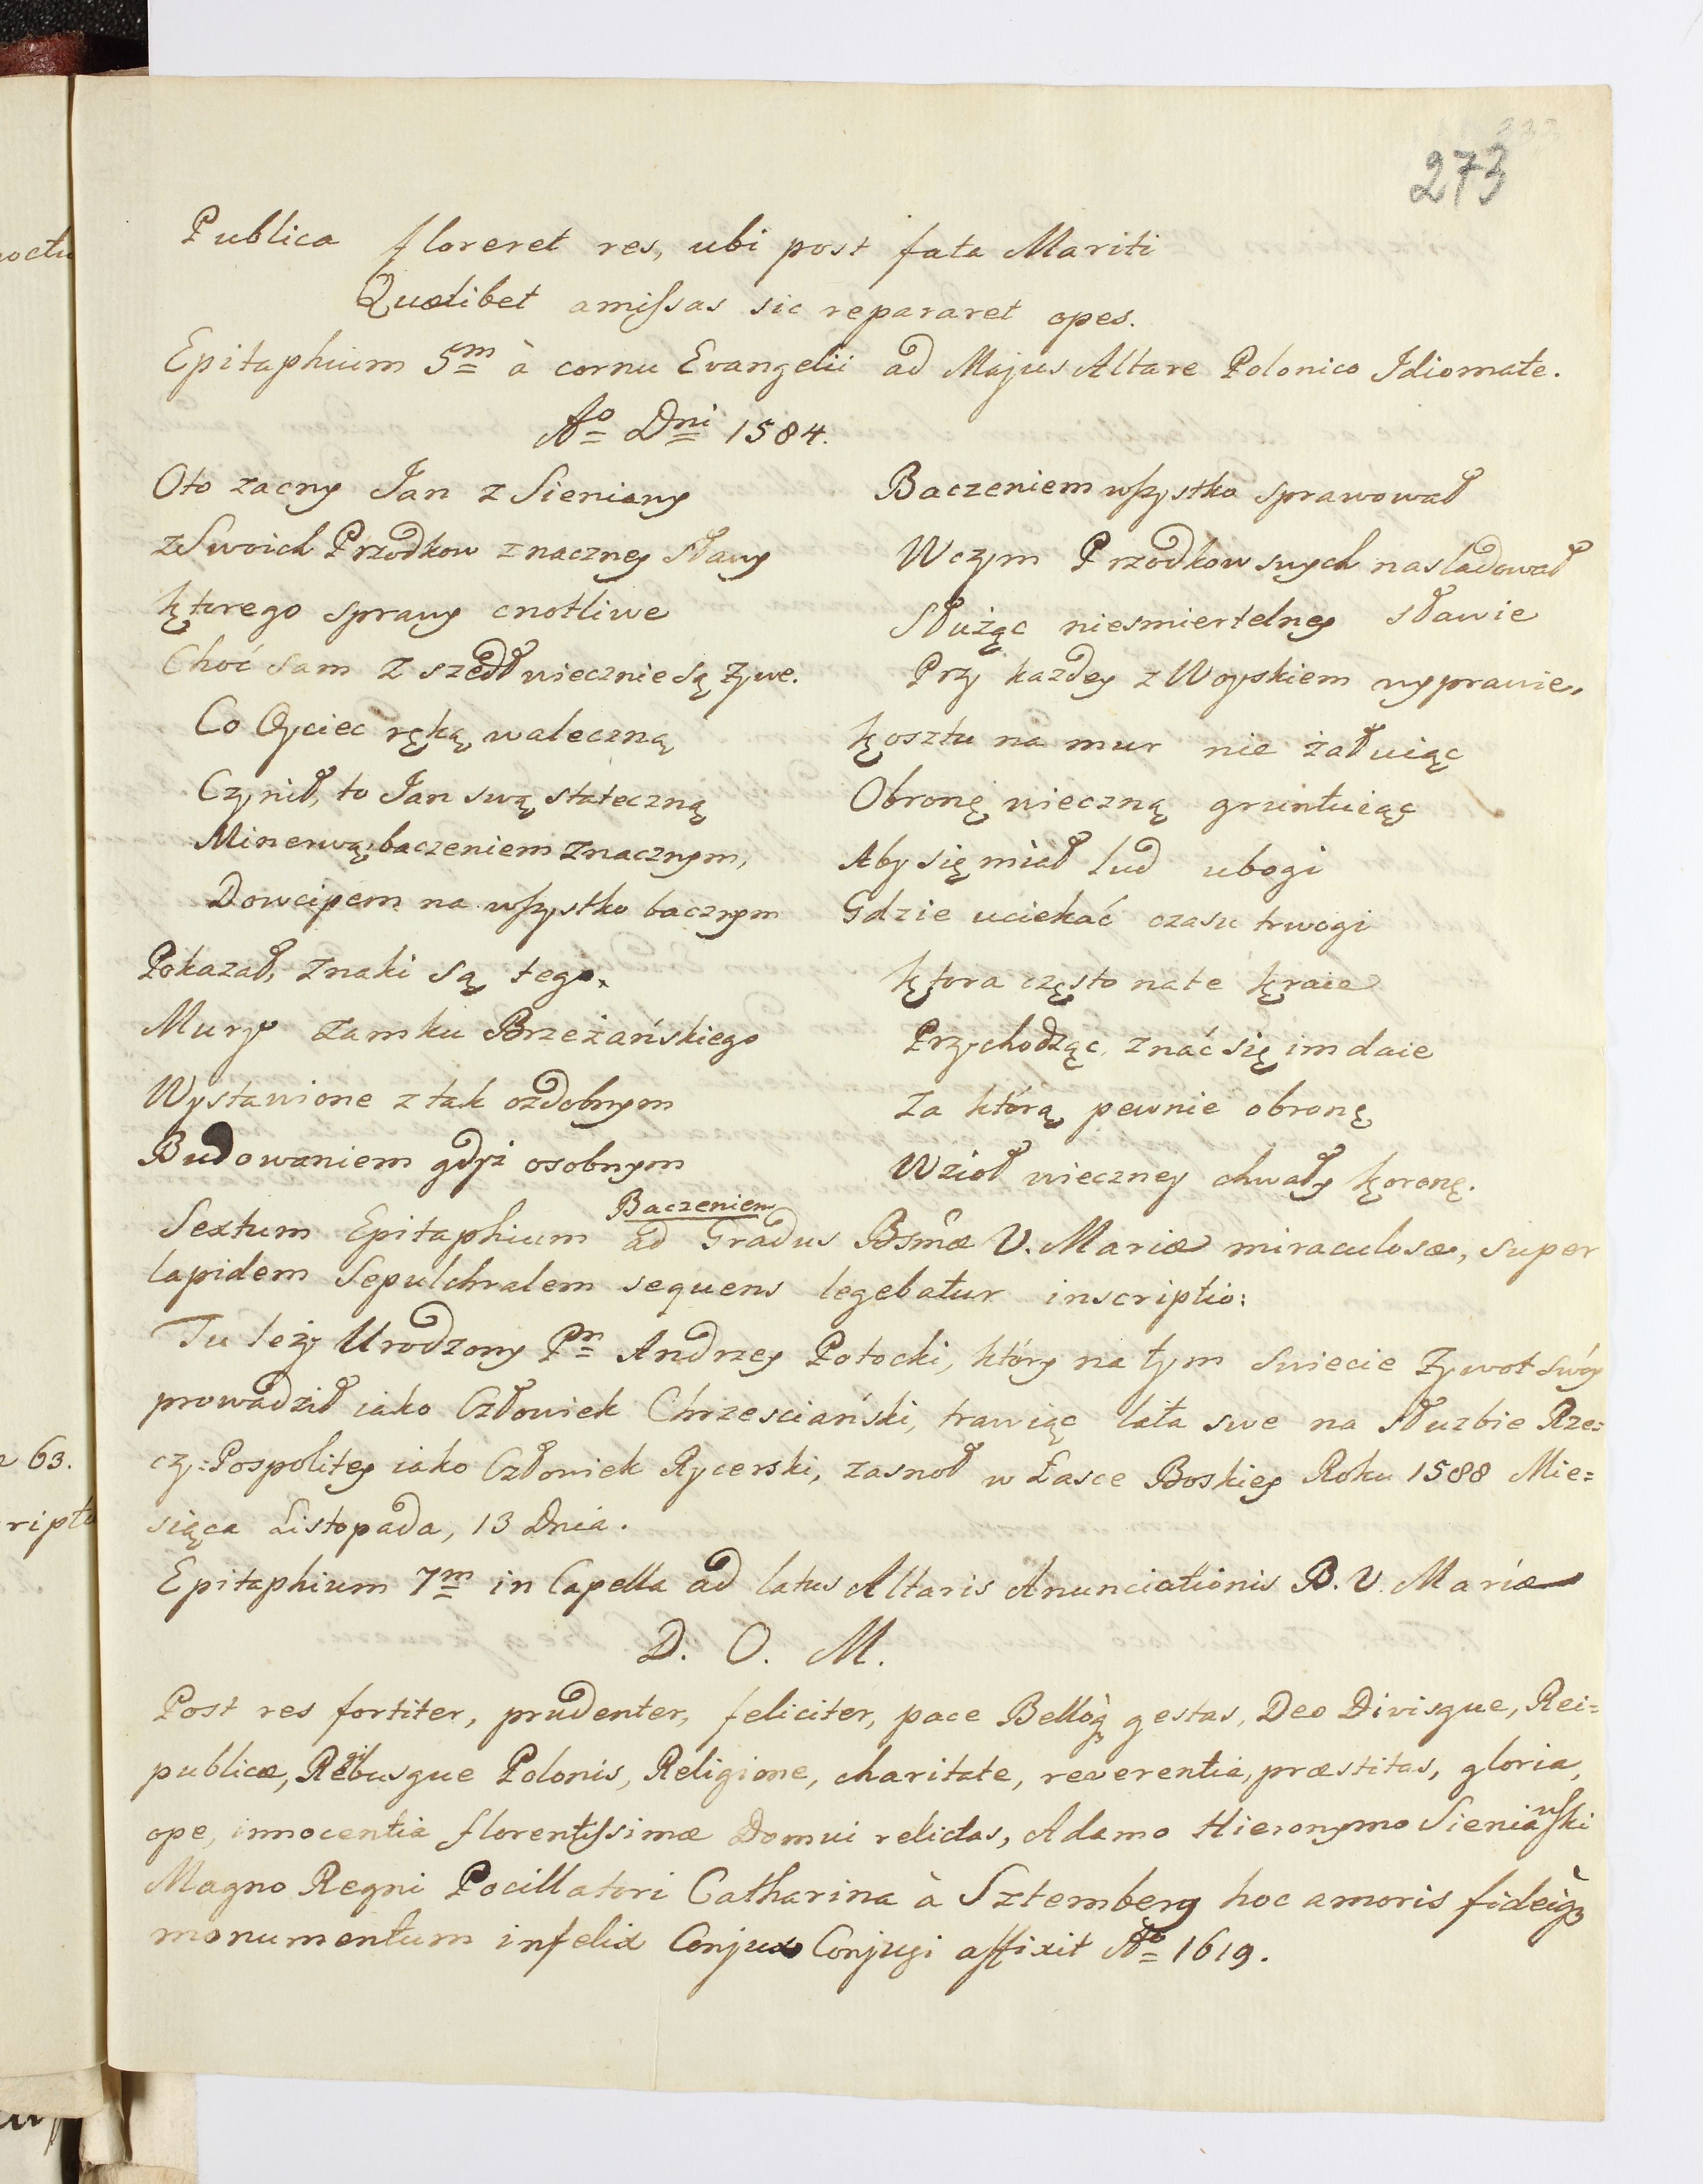 273
Publica floreret res, ubi post fata Mariti
Quælibet amissas sic repararet opes.
Epitaphium 5m à cornu Evangelii ad Majus Altare Polonico Idiomate.
Ao Dni 1584.
Oto zacny Jan z Sieniany
z Swoich Przodkow znaczney sławy
ktorego sprawy cnotliwe
Choć sam z szedł wiecznie są żywe.
Co Oyciec ręką waleczną
Czynił, to Jan swą stateczną
Minerwą, baczeniem znacznym,
Dowcipem na wszystko bacznym
Pokazał, znaki są tego.
Mury zamku Brzeżańskiego
Wystawione z tak ozdobnym
Budowaniem gdyż osobnym
Baczeniem
Baczeniem wszystko sprawował
W czym Przodkow swych nasladował
Służąc niesmiertelney sławie
Przy każdey z Woyskiem wyprawie.
kosztu na mur nie żałuiąc
Obronę wieczną gruntuiąc
Aby się miał lud ubogi
Gdzie uciekać czasu trwogi
ktora często na te kraie
Przychodząc, znać się im daie
Za którą pewnie obronę
Wzioł wieczney chwały koronę.
Sextum Epitaphium ad Gradus Bsmæ V. Mariæ miraculosæ, super
lapidem Sepulchralem sequens legebatur inscriptio:
Tu leży Urodzony Pn Andrzey Potocki, który na tym swiecie żywot swóy
prowadził iako Człowiek Chrzesciański, trawiąc lata swe na służbie Rze=
czy=Pospolitey iako Człowiek Rycerski, zasnoł w Łasce Boskiey Roku 1588 Mie=
siąca Listopada, 13 Dnia.
Epitaphium 7m in Capella ad latus Altaris Anunciationis B. V. Mariæ
D. O. M.
Post res fortiter, prudenter, feliciter, pace Bellòq gestas, Deo Divisque, Rei=
publicæ, Regibusque Polonis, Religione, charitate, reverentia, præstitas, gloria,
ope, innocentia florentissimæ Domui relictas, Adamo Hieronymo Sieniawski
Magno Regni Pocillatori Catharina à Sztemberg hoc amoris fideiq3
monumentum infelix Conjux Conjugi affixit Ao 1619.
octu
63.
ript